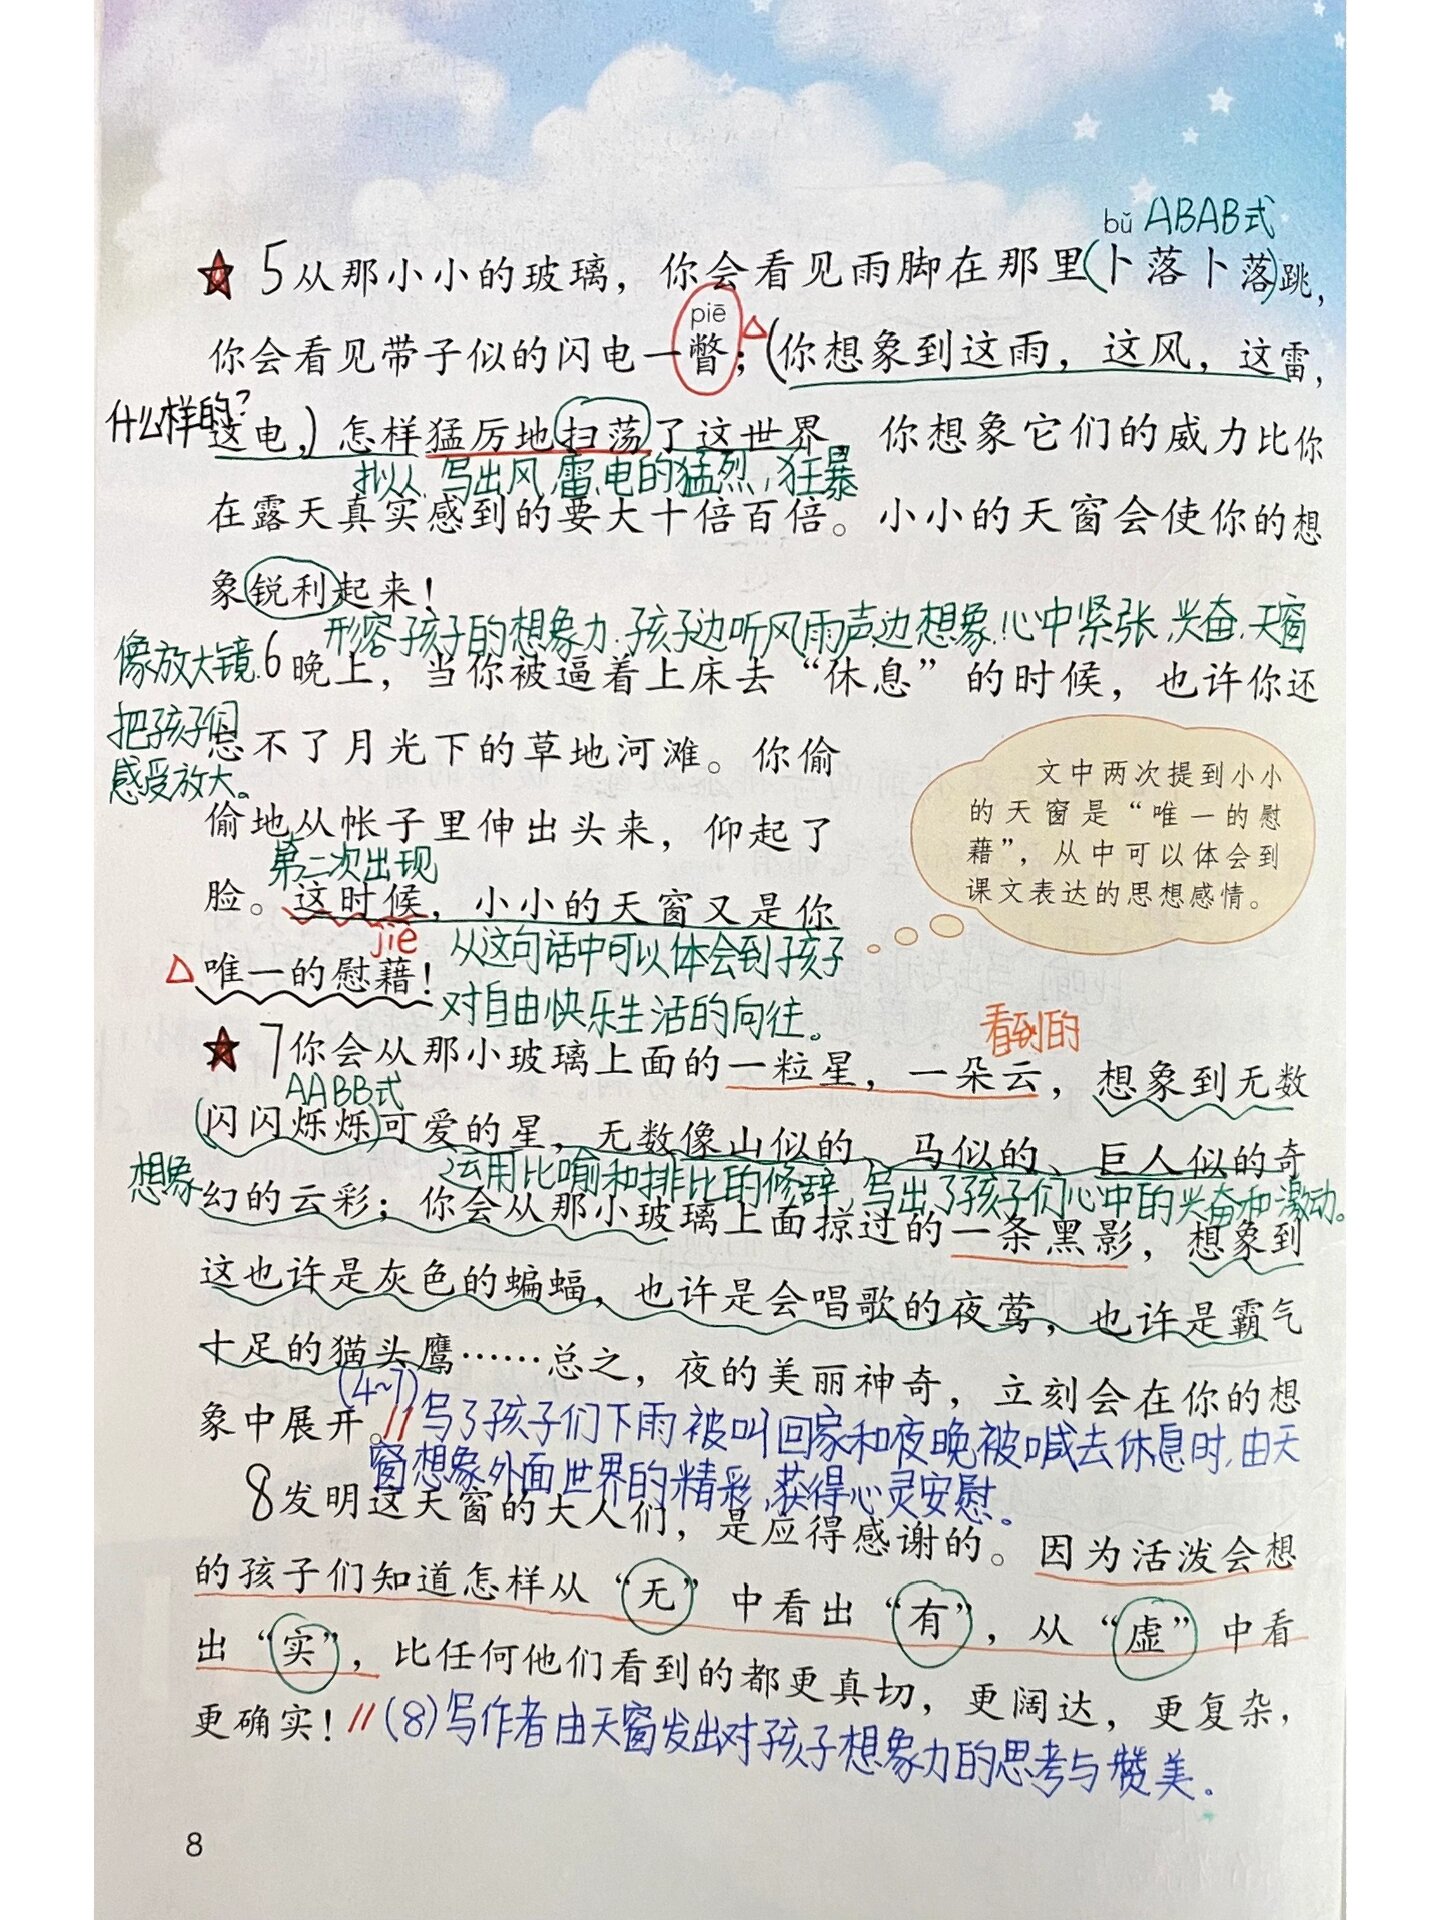 bǔ ABAB式
★ 5从那小小的玻璃，你会看见雨脚在那里(卜落卜落)跳，
piē
你会看见带子似的闪电一瞥；△(你想象到这雨，这风，这雷，
什么样的？
这电，)怎样猛厉地扫荡了这世界，你想象它们的威力比你
拟人，写出风、雷、电的猛烈，狂暴
在露天真实感到的要大十倍百倍。小小的天窗会使你的想
象锐利起来！
形容孩子的想象力.孩子边听风雨声边想象.心中紧张、兴奋.天窗
像放大镜.
6晚上，当你被逼着上床去“休息”的时候，也许你还
把孩子们
忘不了月光下的草地河滩。你偷
感受放大。
偷地从帐子里伸出头来，仰起了
第二次出现
脸。这时候，小小的天窗又是你
jiè
△唯一的慰藉！
从这句话中可以体会到孩子
对自由快乐生活的向往。
文中两次提到小小
的天窗是“唯一的慰
藉”，从中可以体会到
课文表达的思想感情。
看到的
★ 7你会从那小玻璃上面的一粒星，一朵云，想象到无数
AABB式
(闪闪烁烁)可爱的星，无数像山似的、马似的、巨人似的奇
想象
运用比喻和排比的修辞，写出了孩子们心中的兴奋和激动。
幻的云彩；你会从那小玻璃上面掠过的一条黑影，想象到
这也许是灰色的蝙蝠，也许是会唱歌的夜莺，也许是霸气
十足的猫头鹰……总之，夜的美丽神奇，立刻会在你的想
象中展开。//
(4~7)写了孩子们下雨被叫回家和夜晚被喊去休息时，由天
窗想象外面世界的精彩，获得心灵安慰。
8发明这天窗的大人们，是应得感谢的。因为活泼会想
的孩子们知道怎样从“无”中看出“有”，从“虚”中看
出“实”，比任何他们看到的都更真切，更阔达，更复杂，
更确实！//(8)写作者由天窗发出对孩子想象力的思考与赞美。
8